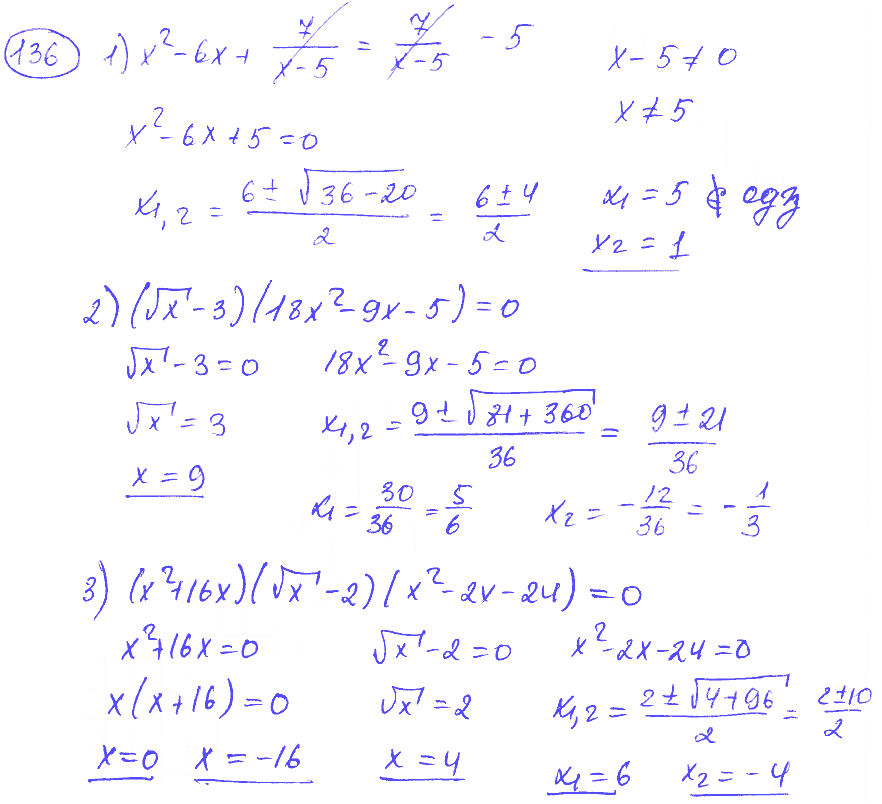 136 1) x² - 6x + 7/(x-5) = 7/(x-5) - 5 x - 5 ≠ 0
x ≠ 5
x² - 6x + 5 = 0
x₁,₂ = (6 ± √(36-20))/2 = (6 ± 4)/2 x₁ = 5 ∉ одз
x₂ = 1
2) (√x - 3)(18x² - 9x - 5) = 0
√x - 3 = 0 18x² - 9x - 5 = 0
√x = 3 x₁,₂ = (9 ± √(81 + 360))/36 = (9 ± 21)/36
x = 9
x₁ = 30/36 = 5/6 x₂ = -12/36 = -1/3
3) (x² + 16x)(√x - 2)(x² - 2x - 24) = 0
x² + 16x = 0 √x - 2 = 0 x² - 2x - 24 = 0
x(x + 16) = 0 √x = 2 x₁,₂ = (2 ± √(4 + 96))/2 = (2 ± 10)/2
x = 0 x = -16 x = 4 x₁ = 6 x₂ = -4